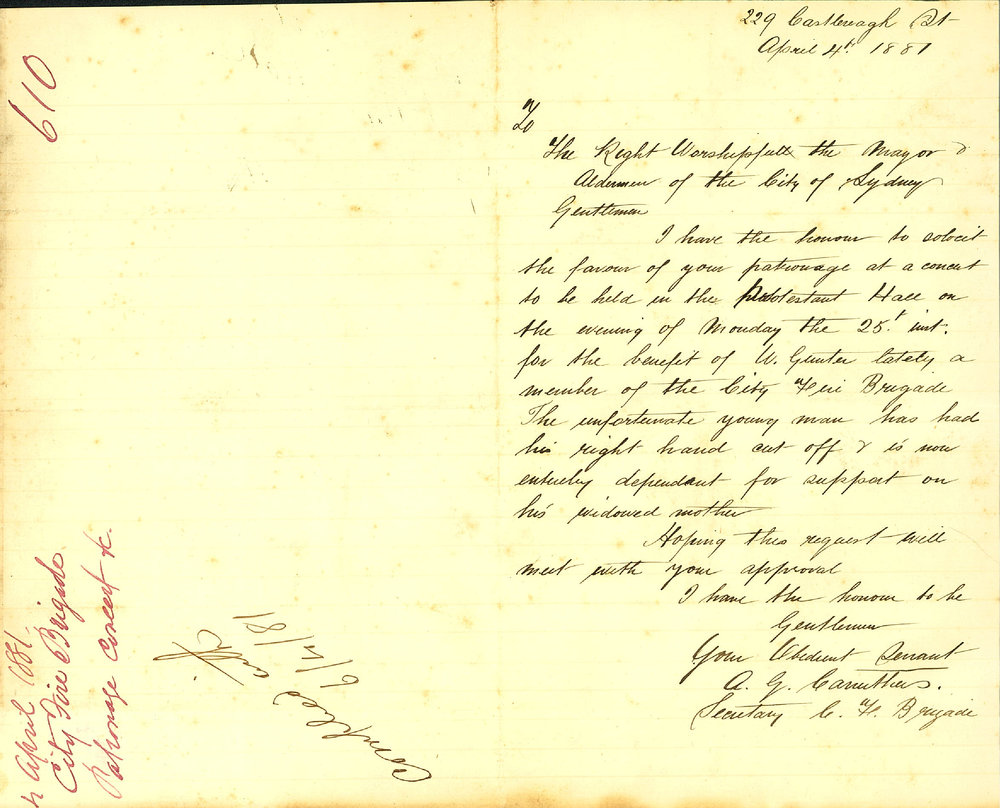 229 Castlereagh St
April 4th. 1881
To
The Right Worshipfull the Mayor &
Aldermen of the City of Sydney
Gentlemen
I have the honour to solocit
the favour of your patronage at a concert
to be held in the Protestant Hall on
the evening of Monday the 25t. inst.
for the benefit of W. Gunter lately a
member of the City Fire Brigade
The unfortunate young man has had
his right hand cut off & is now
entirely dependant for support on
his widowed mother
Hoping this request will
meet with your approval
I have the honour to be
Gentlemen
Your Obedient Servant
A. G. Carruthers.
Secretary C. F. Brigade
610
April 1881
City Fire Brigade
Patronage Concert &c.
Complied with
6/4/81